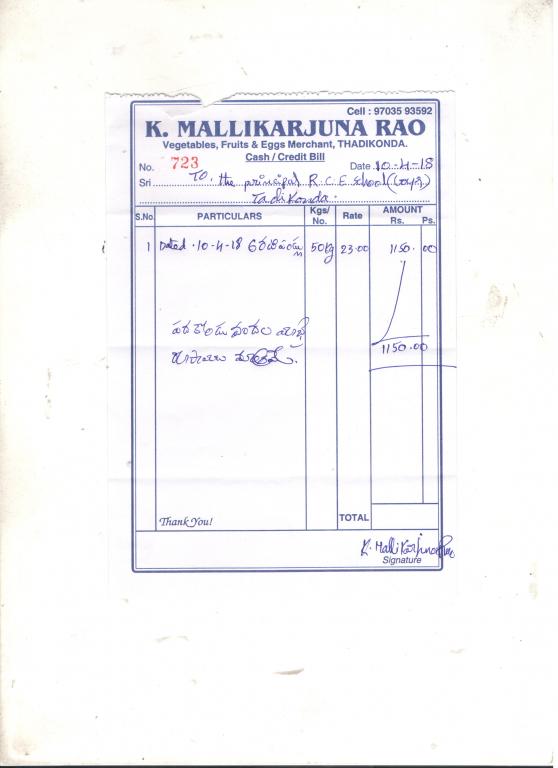 Cell : 97035 93592
K. MALLIKARJUNA RAO
Vegetables, Fruits & Eggs Merchant, THADIKONDA.
Cash / Credit Bill
No. 723 Date 10-4-18
Sri To, the principal R.C.E School (Boys)
Tadikonda.
S.No. PARTICULARS Kgs/ No. Rate AMOUNT Rs. Ps.
1 Dated . 10-4-18 50kg 23.00 1150. 00
1150.00
రూపాయలు
Thank You! TOTAL
K. Mallikarjuna Rao
Signature